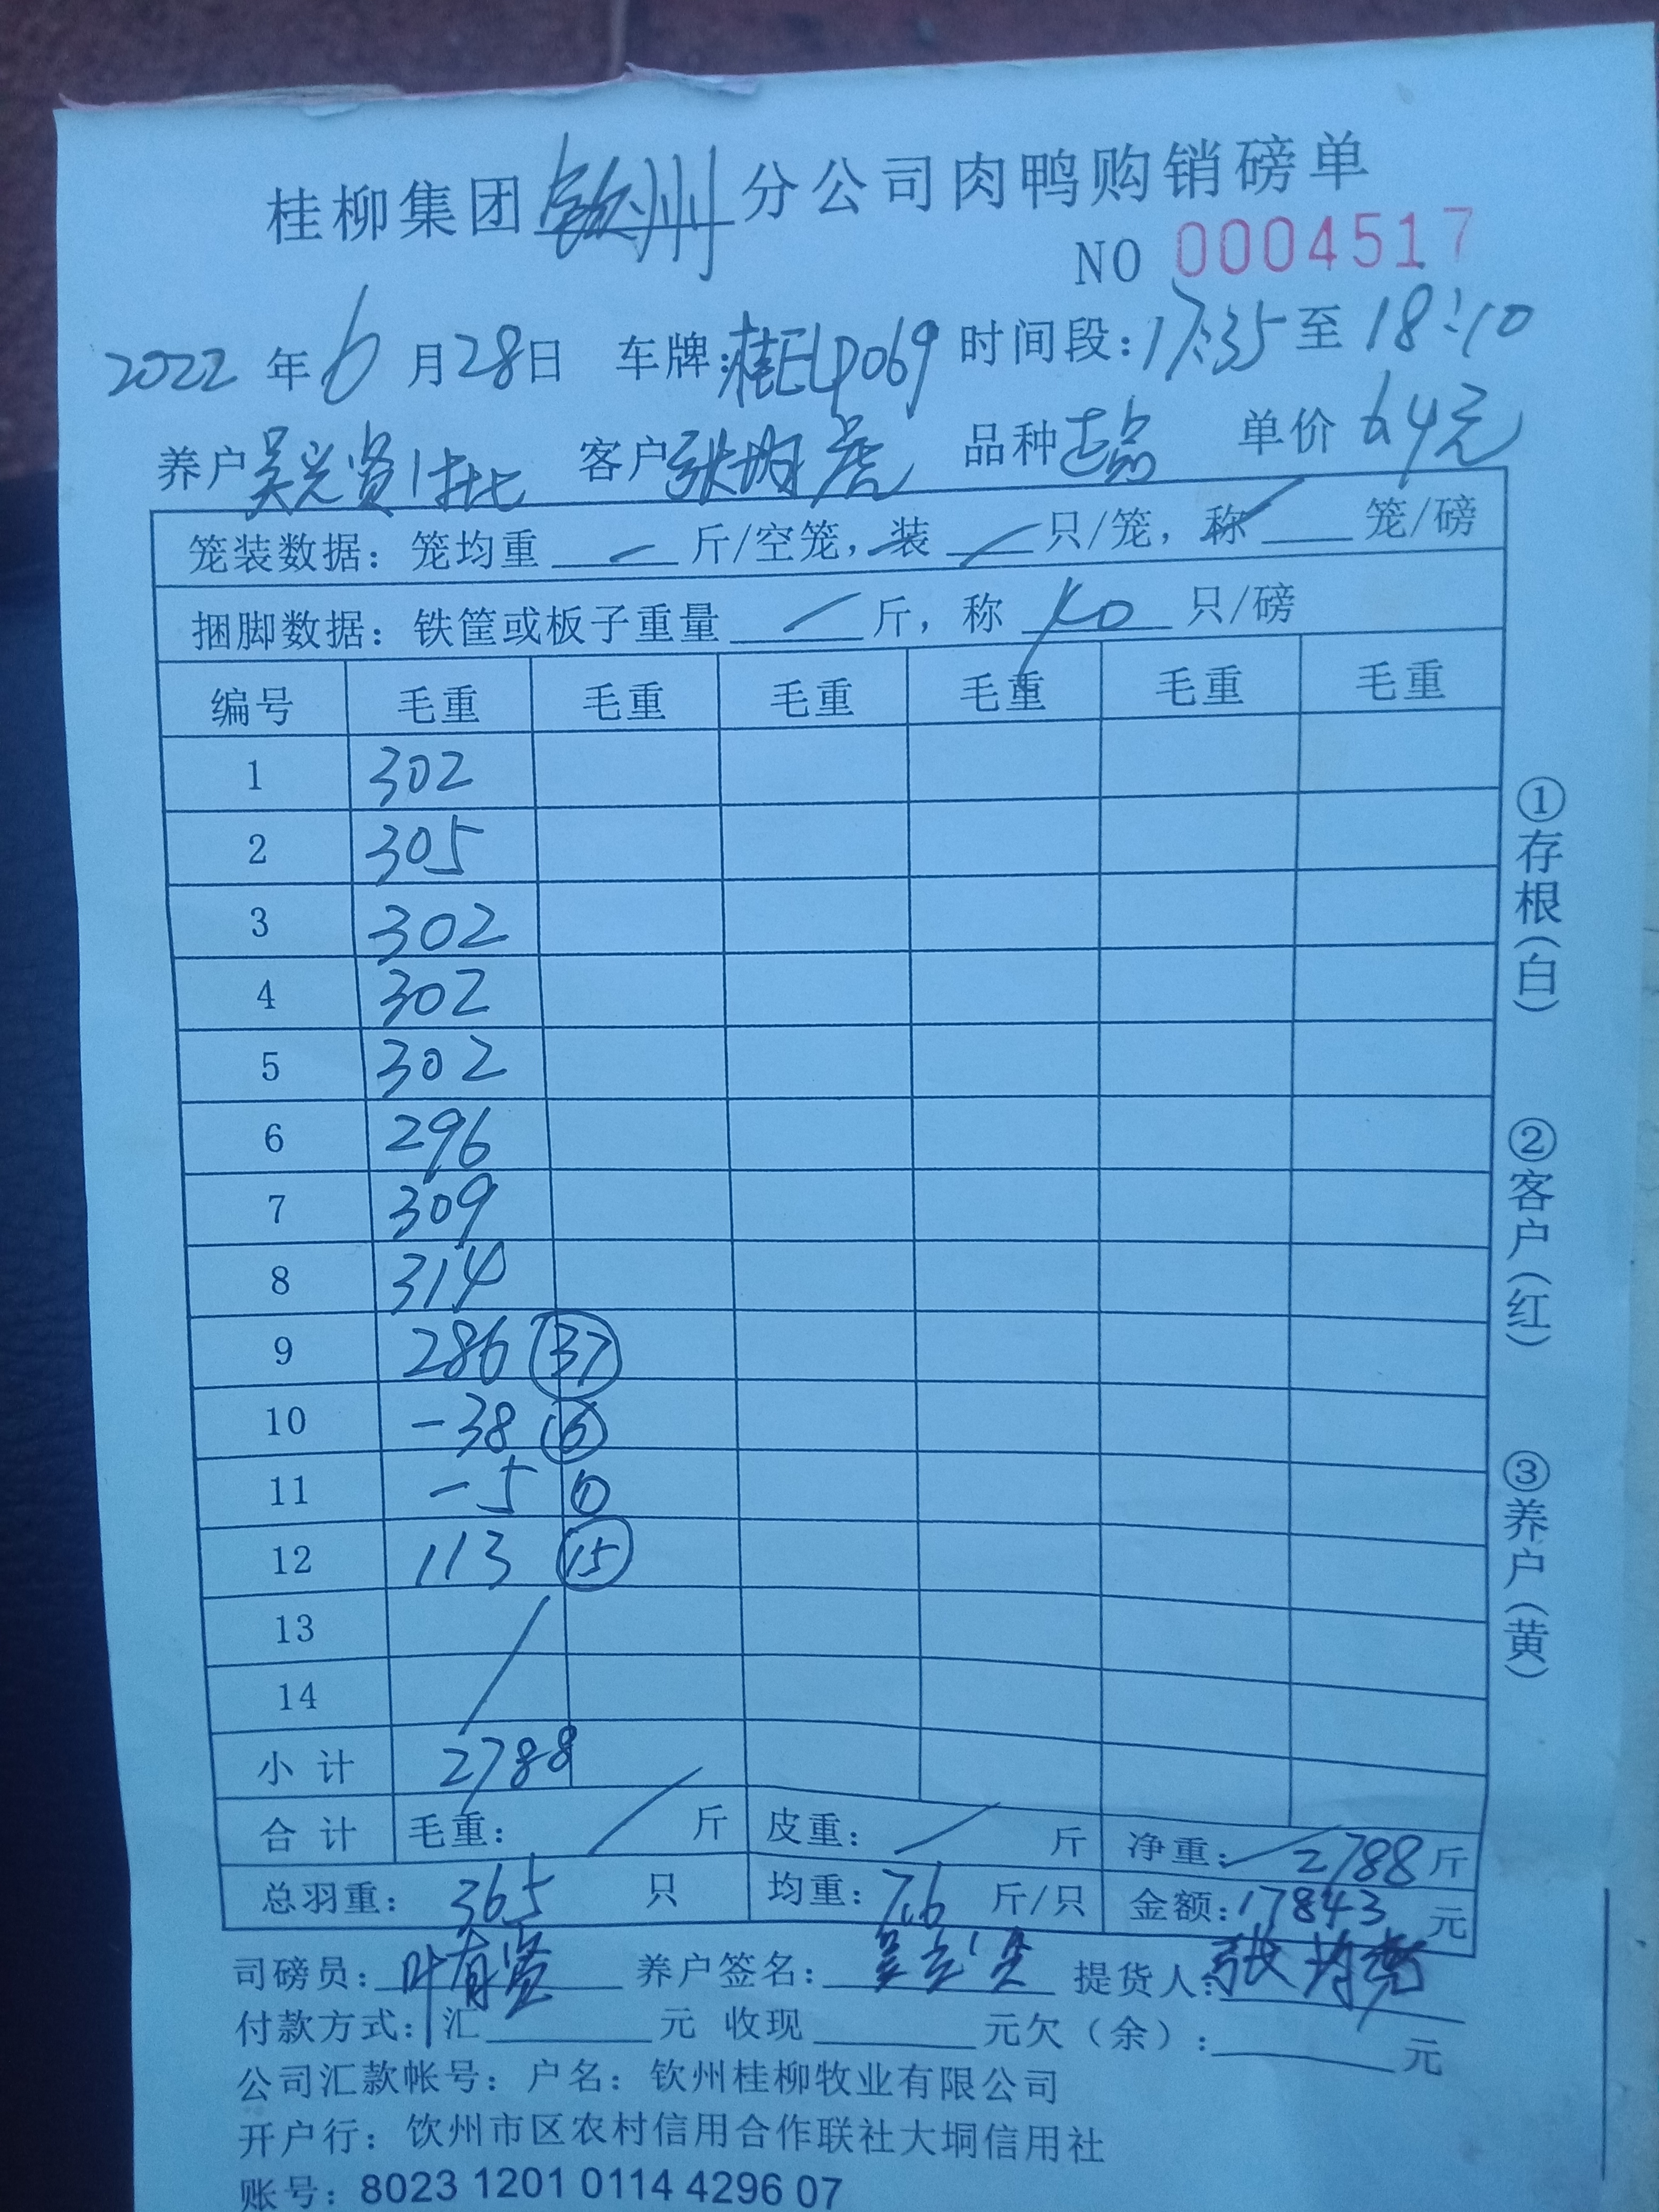 桂柳集团钦州分公司肉鸭购销磅单
NO 0004517
2022年6月28日 车牌:桂ELP069 时间段:17:35至18:10
养户吴兴贤1批 客户张均亮 品种 单价6.4元
笼装数据:笼均重 — 斤/空笼,装 / 只/笼,称 / 笼/磅
捆脚数据:铁筐或板子重量 / 斤,称 40 只/磅
编号 毛重 毛重 毛重 毛重 毛重 毛重
1 302
2 305
3 302
4 302
5 302
6 296
7 309
8 314
9 286 37
10 -38 6
11 -5 1
12 113 15
13
14
小计 2788
合计 毛重: / 斤 皮重: / 斤 净重: 2788斤
总羽重: 365 只 均重:7.6 斤/只 金额:17843 元
司磅员:叶有贤 养户签名:吴兴贤 提货人:张均亮
付款方式:汇 元 收现 元欠(余): 元
公司汇款帐号:户名:钦州桂柳牧业有限公司
开户行:钦州市区农村信用合作联社大垌信用社
账号:8023 1201 0114 4296 07
①存根(白)
②客户(红)
③养户(黄)